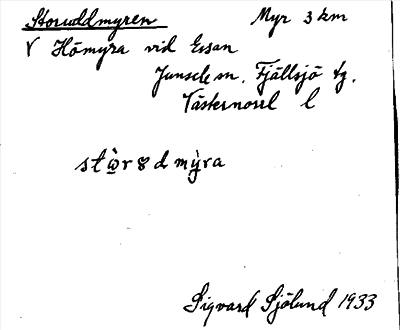 Storuddmyren Myr 3 km
V Hömyra vid Essan
Junsele sn. Fjällsjö tg.
Västernorrl l
stò̱r8dmỳra
Sigvard Sjölund 1933